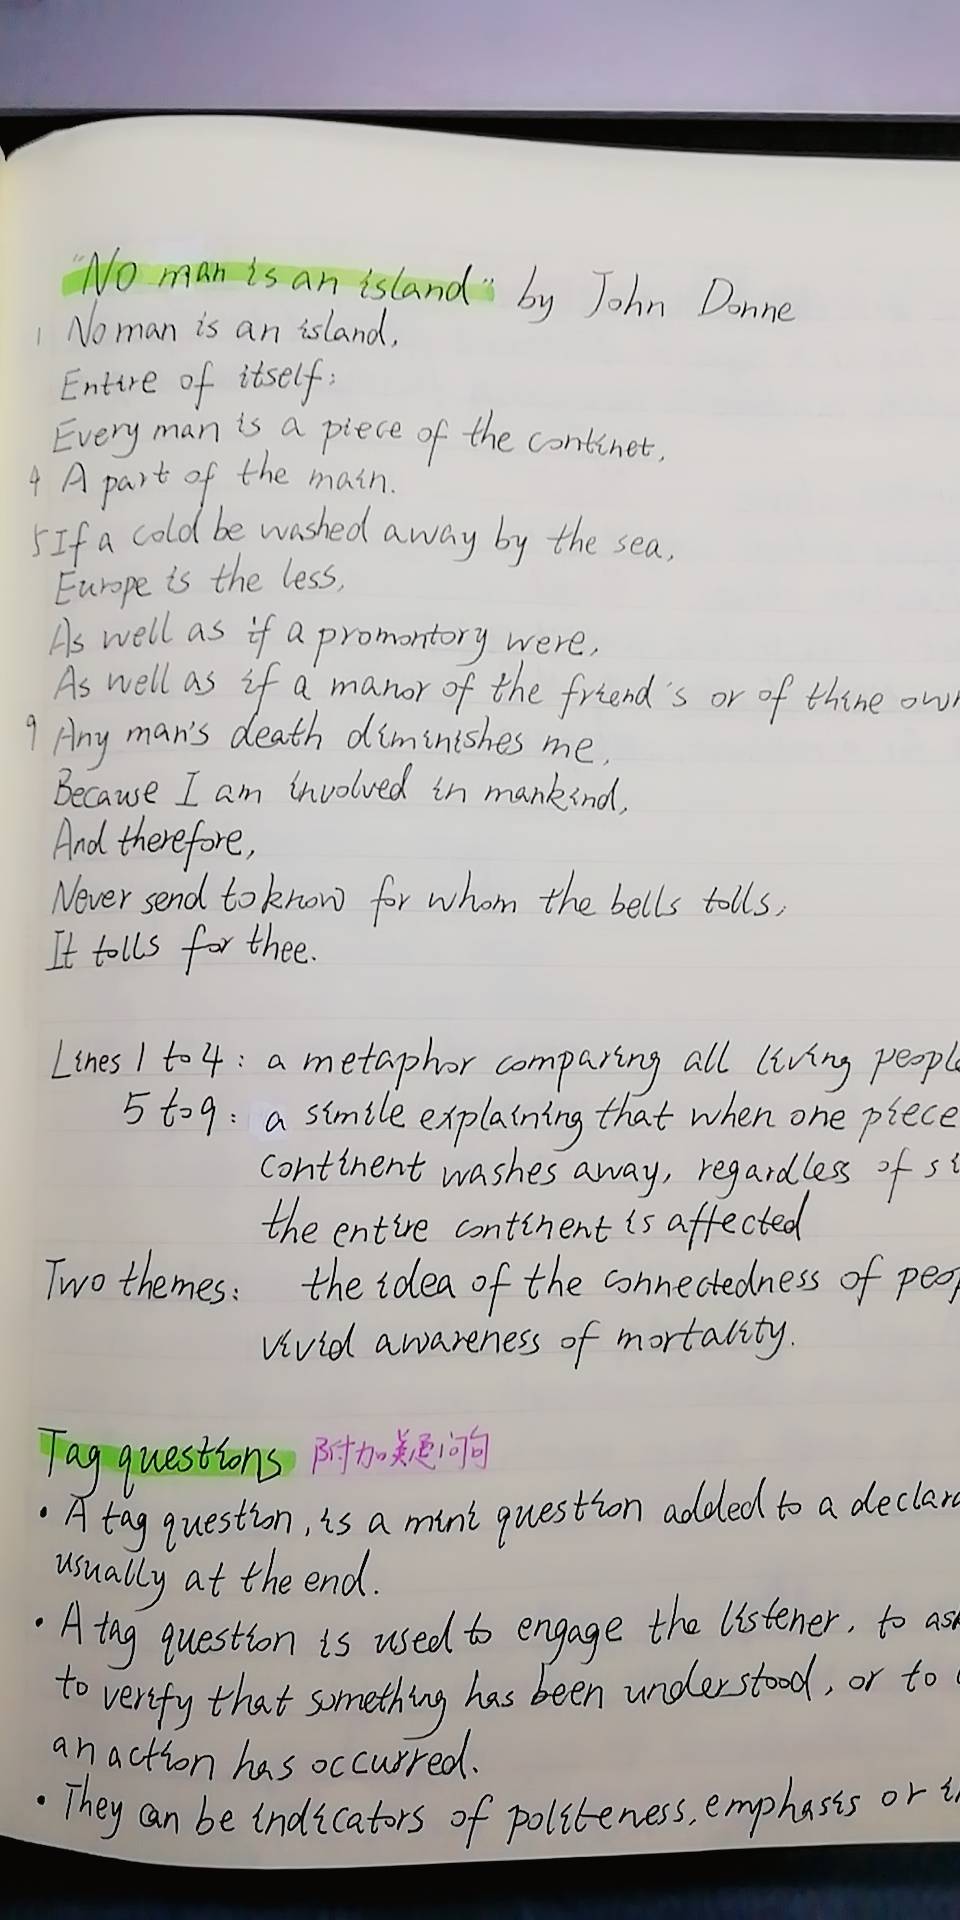 "No man is an island" by John Donne
1 No man is an island,
Entire of itself;
Every man is a piece of the continet,
4 A part of the main.
5 If a cold be washed away by the sea,
Europe is the less,
As well as if a promontory were,
As well as if a manor of the friend's or of thine own
9 Any man's death diminishes me,
Because I am involved in mankind,
And therefore,
Never send to know for whom the bells tolls;
It tolls for thee.
Lines 1 to 4: a metaphor comparing all living people
5 to 9: a simile explaining that when one piece
continent washes away, regardless of si
the entire continent is affected
Two themes: the idea of the connectedness of peop
vivid awareness of mortality.
Tag questions 附加疑问句
• A tag question, is a mini question added to a declara
usually at the end.
• A tag question is used to engage the listener, to ask
to verify that something has been understood, or to
an action has occurred.
• They can be indicators of politeness, emphasis or i